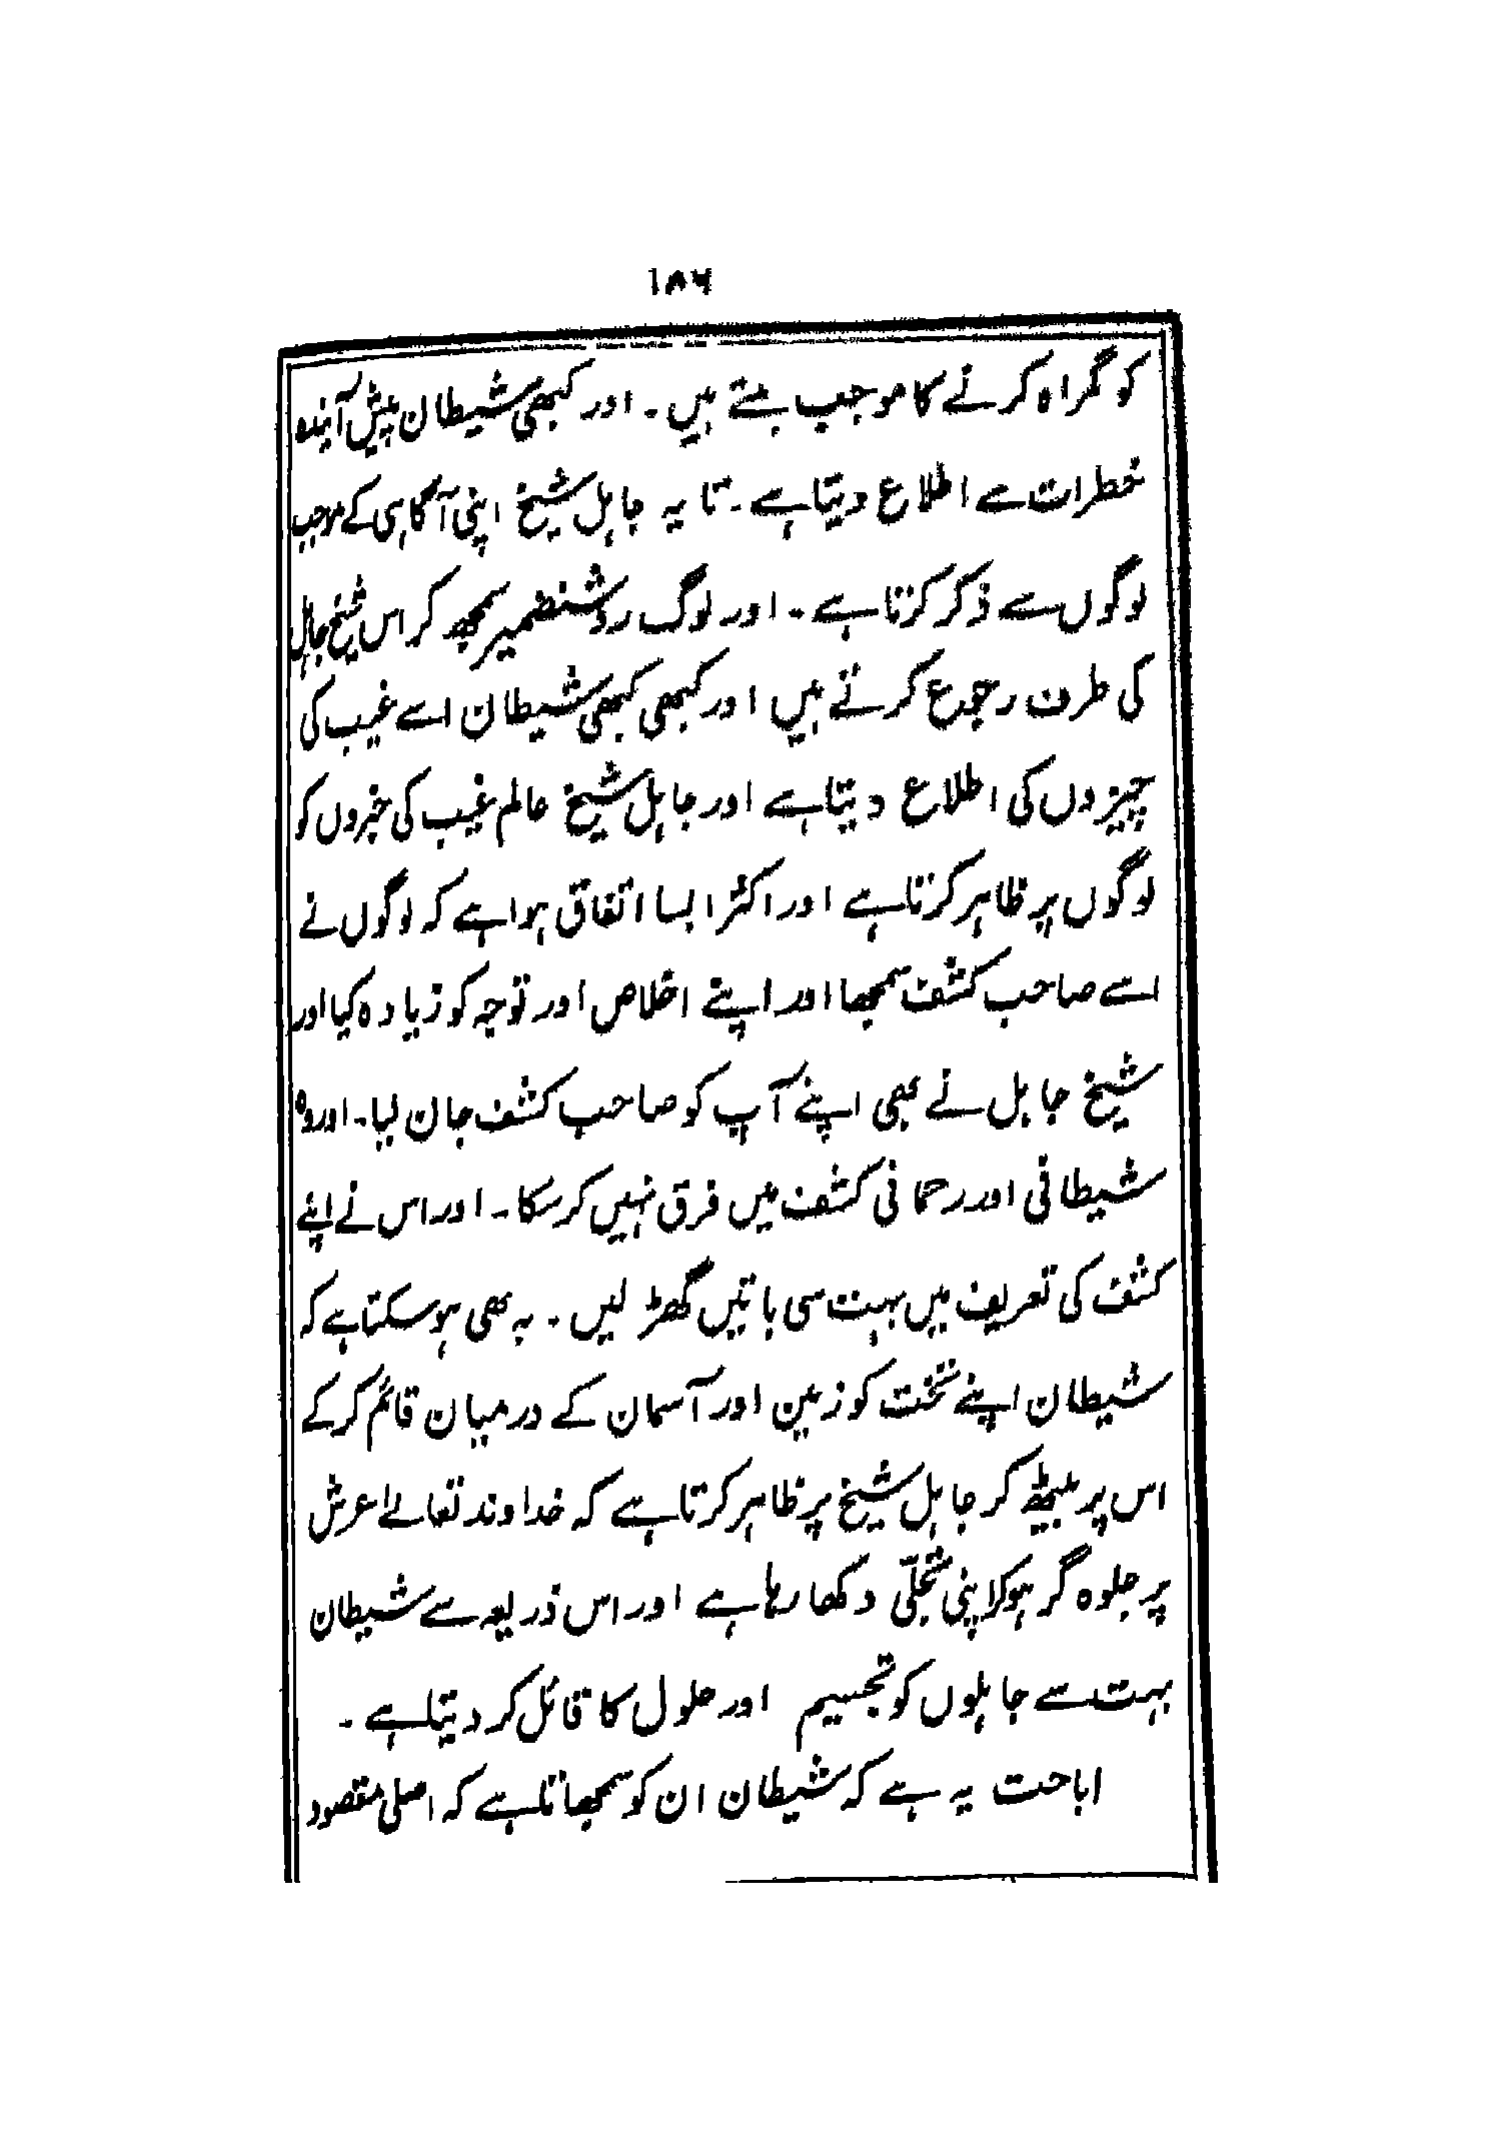 ۱۸۶
کو گمراہ کرنے کا موجب بنتے ہیں ۔ اور کبھی شیطان پیش آئندہ
خطرات سے اطلاع دیتا ہے ۔ تا یہ جاہل شیخ اپنی آگاہی کے موجب
لوگوں سے ذکر کرتا ہے ۔ اور لوگ روشنضمیر سمجھ کر اس شیخ جاہل
کی طرف رجوع کرتے ہیں اور کبھی کبھی شیطان اسے غیب کی
چیزوں کی اطلاع دیتا ہے اور جاہل شیخ عالم غیب کی خبروں کو
لوگوں پر ظاہر کرتا ہے اور اکثر ایسا اتفاق ہوا ہے کہ لوگوں نے
اسے صاحب کشف سمجھا اور اپنے اخلاص اور توجہ کو زیادہ کیا اور
شیخ جاہل نے بھی اپنے آپ کو صاحب کشف جان لیا ۔ اور وہ
شیطانی اور رحمانی کشف میں فرق نہیں کر سکا ۔ اور اس نے اپنے
کشف کی تعریف میں بہت سی باتیں گھڑ لیں ۔ یہ بھی ہو سکتا ہے کہ
شیطان اپنے تخت کو زمین اور آسمان کے درمیان قائم کر کے
اس پر بیٹھ کر جاہل شیخ پر ظاہر کرتا ہے کہ خداوند تعالےٰ عرش
پر جلوہ گر ہو کر اپنی تجلّی دکھا رہا ہے اور اس ذریعہ سے شیطان
بہت سے جاہلوں کو تجسیم اور حلول کا قائل کر دیتا ہے ۔
اباحت یہ ہے کہ شیطان ان کو سمجھاتا ہے کہ اصلی مقصود